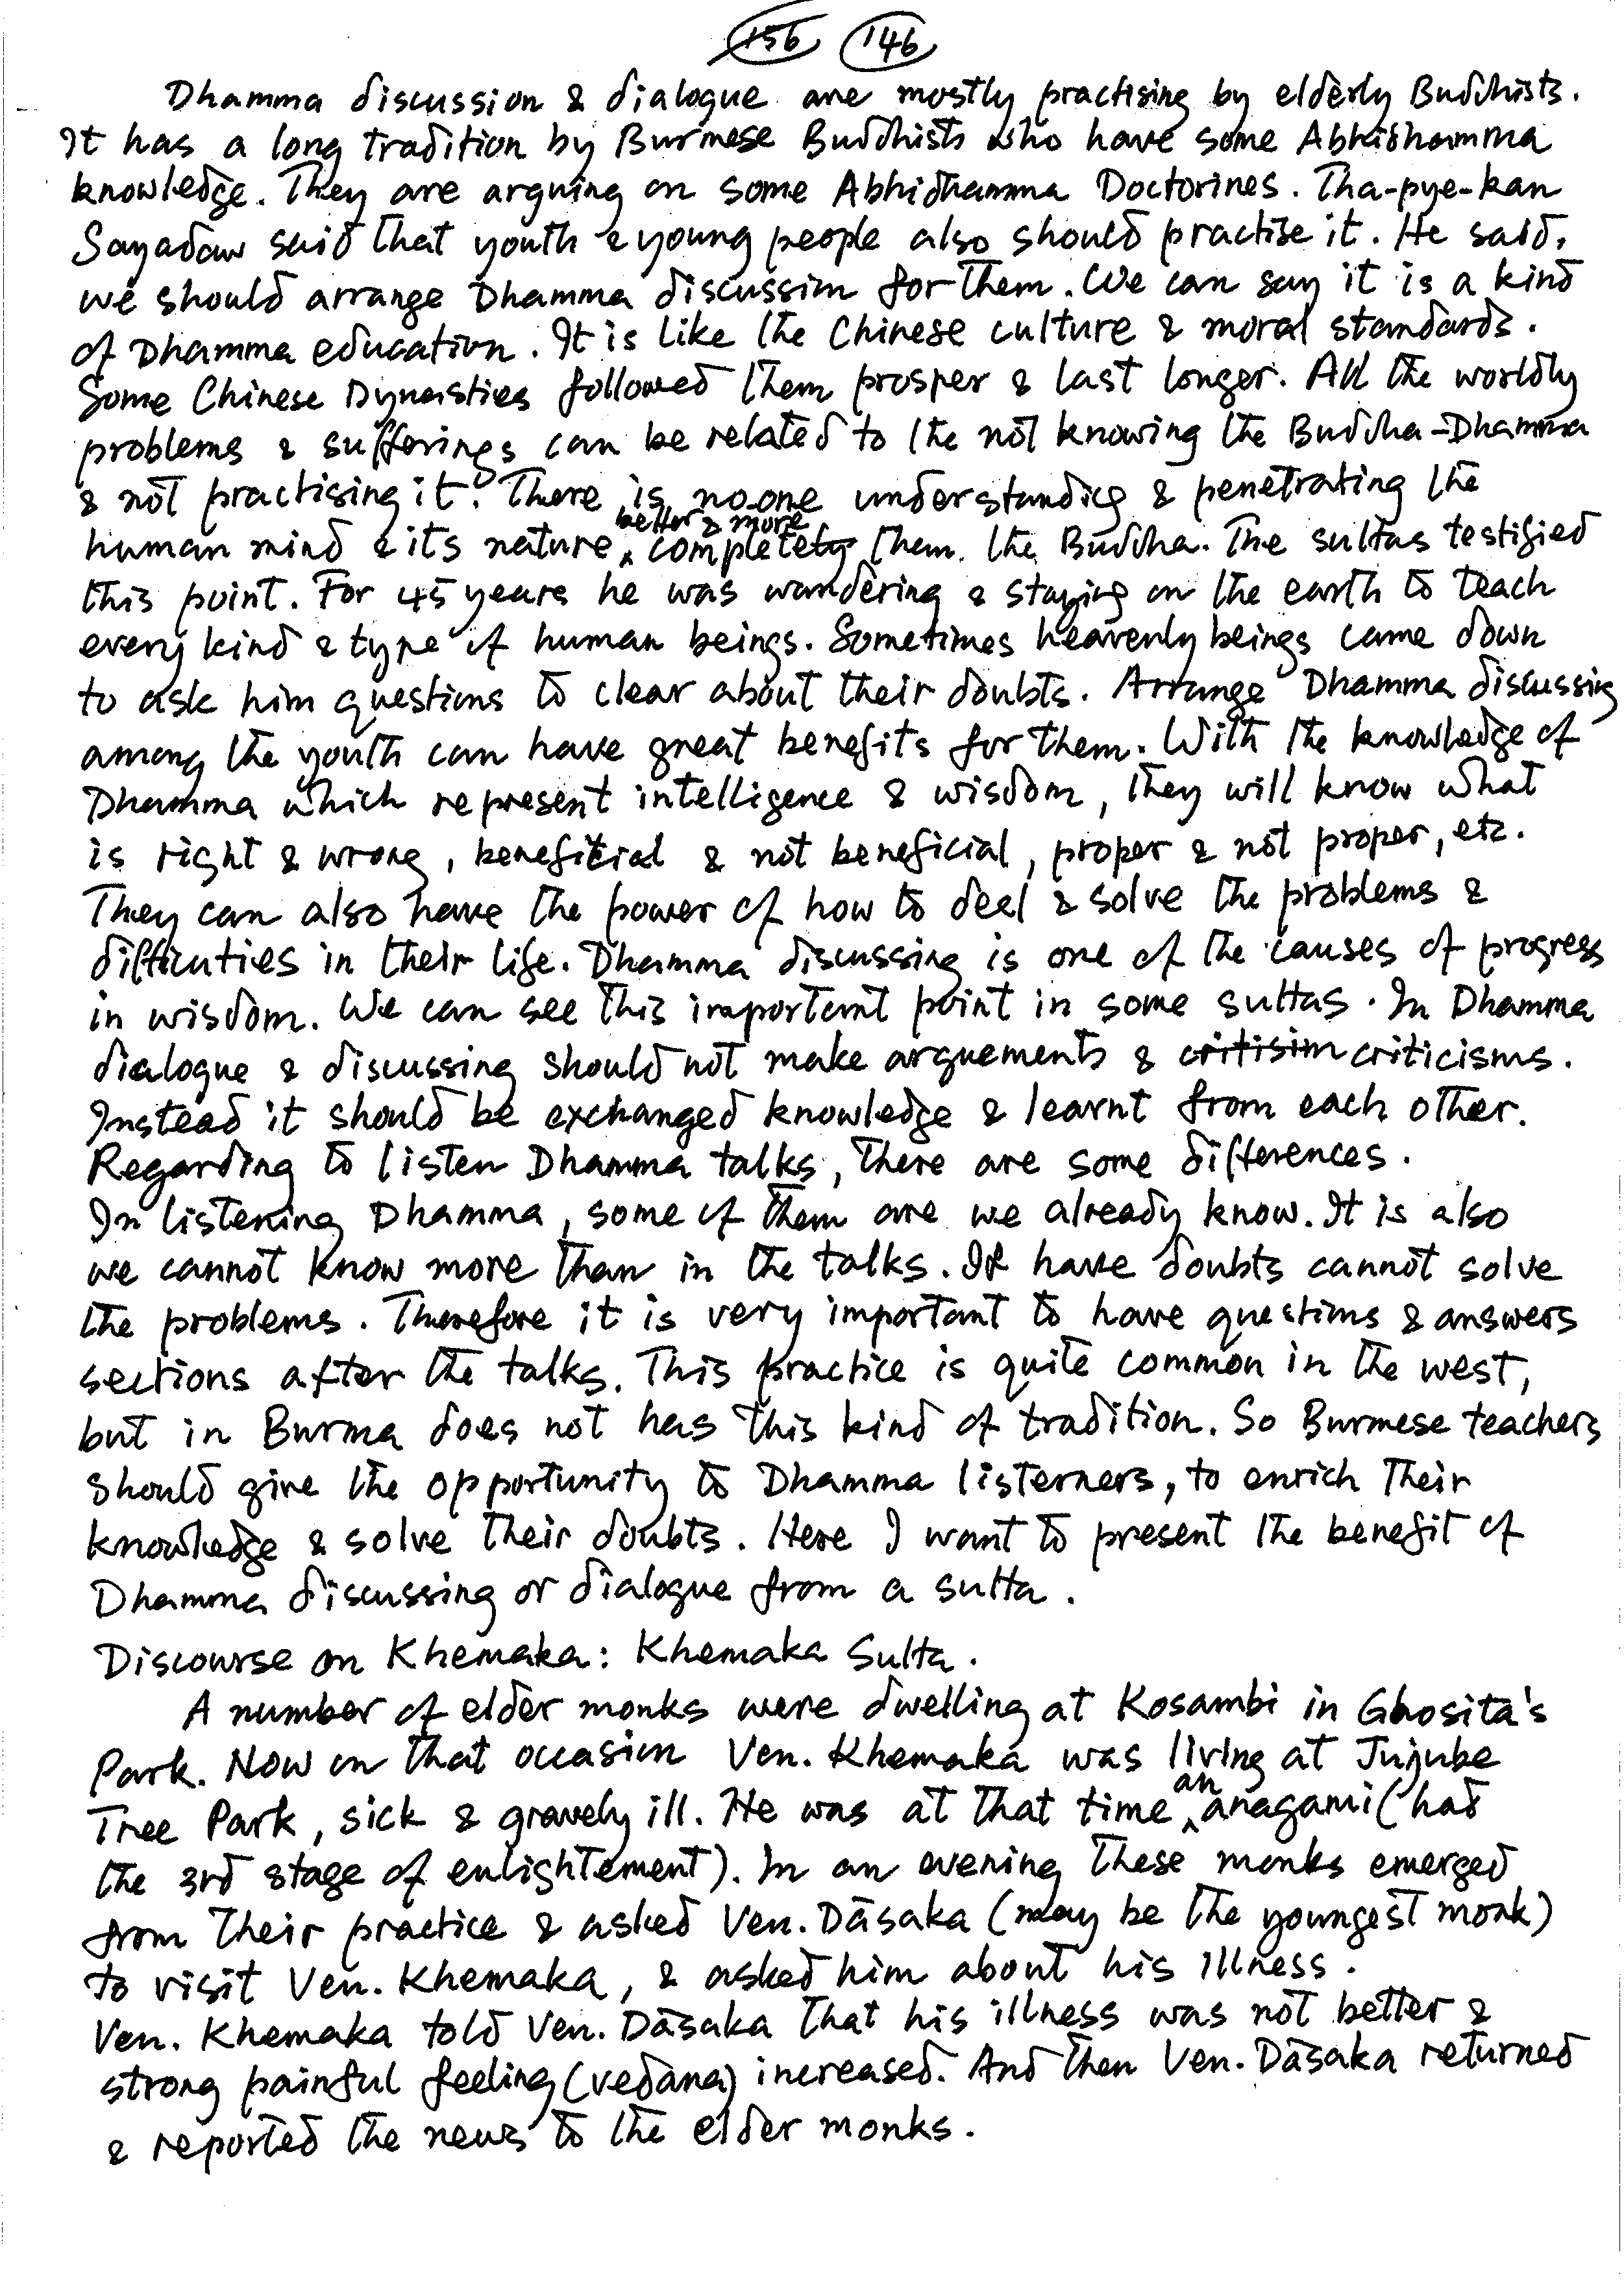 156 146
Dhamma discussion & dialogue are mostly practising by elderly Buddhists.
It has a long tradition by Burmese Buddhists who have some Abhidhamma
knowledge. They are arguing on some Abhidhamma Doctorines. Tha-pye-kan
Sayadaw said that youth & young people also should practise it. He said,
we should arrange Dhamma discussion for them. We can say it is a kind
of Dhamma education. It is like the Chinese culture & moral standards.
Some Chinese Dynasties followed them prosper & last longer. All the worldly
problems & sufferings can be related to the not knowing the Buddha-Dhamma
& not practising it. There is no-one understanding & penetrating the
better & more
human mind & its nature completety them the Buddha. The suttas testified
this point. For 45 years he was wandering & staying on the earth to teach
every kind & type of human beings. Sometimes heavenly beings came down
to ask him questions to clear about their doubts. Arrange Dhamma discussing
among the youth can have great benefits for them. With the knowledge of
Dhamma which represent intelligence & wisdom, they will know what
is right & wrong, beneficial & not beneficial, proper & not proper, etc.
They can also have the power of how to deel & solve the problems &
difficuties in their life. Dhamma discussing is one of the causes of progress
in wisdom. We can see this important point in some suttas. In Dhamma
dialogue & discussing should not make arguements & critisim criticisms.
Instead it should be exchanged knowledge & learnt from each other.
Regarding to listen Dhamma talks, there are some differences.
In listening Dhamma, some of them are we already know. It is also
we cannot know more than in the talks. If have doubts cannot solve
the problems. Therefore it is very important to have questions & answers
sections after the talks. This practice is quite common in the west,
but in Burma does not has this kind of tradition. So Burmese teachers
should give the opportunity to Dhamma listerners, to enrich their
knowledge & solve their doubts. Here I want to present the benefit of
Dhamma discussing or dialogue from a sutta.
Discourse on Khemaka: Khemaka Sutta.
A number of elder monks were dwelling at Kosambi in Ghosita's
Park. Now on that occasion Ven. Khemaka was living at Jujube
an
Tree Park, sick & gravely ill. He was at that time anagami (had
the 3rd stage of enlightement). In an evening these monks emerged
from their practice & asked Ven. Dāsaka (may be the youngest monk)
to visit Ven. Khemaka, & asked him about his illness.
Ven. Khemaka told Ven. Dāsaka that his illness was not better &
strong painful feeling (vedana) increased. And then Ven. Dāsaka returned
& reported the news to the elder monks.